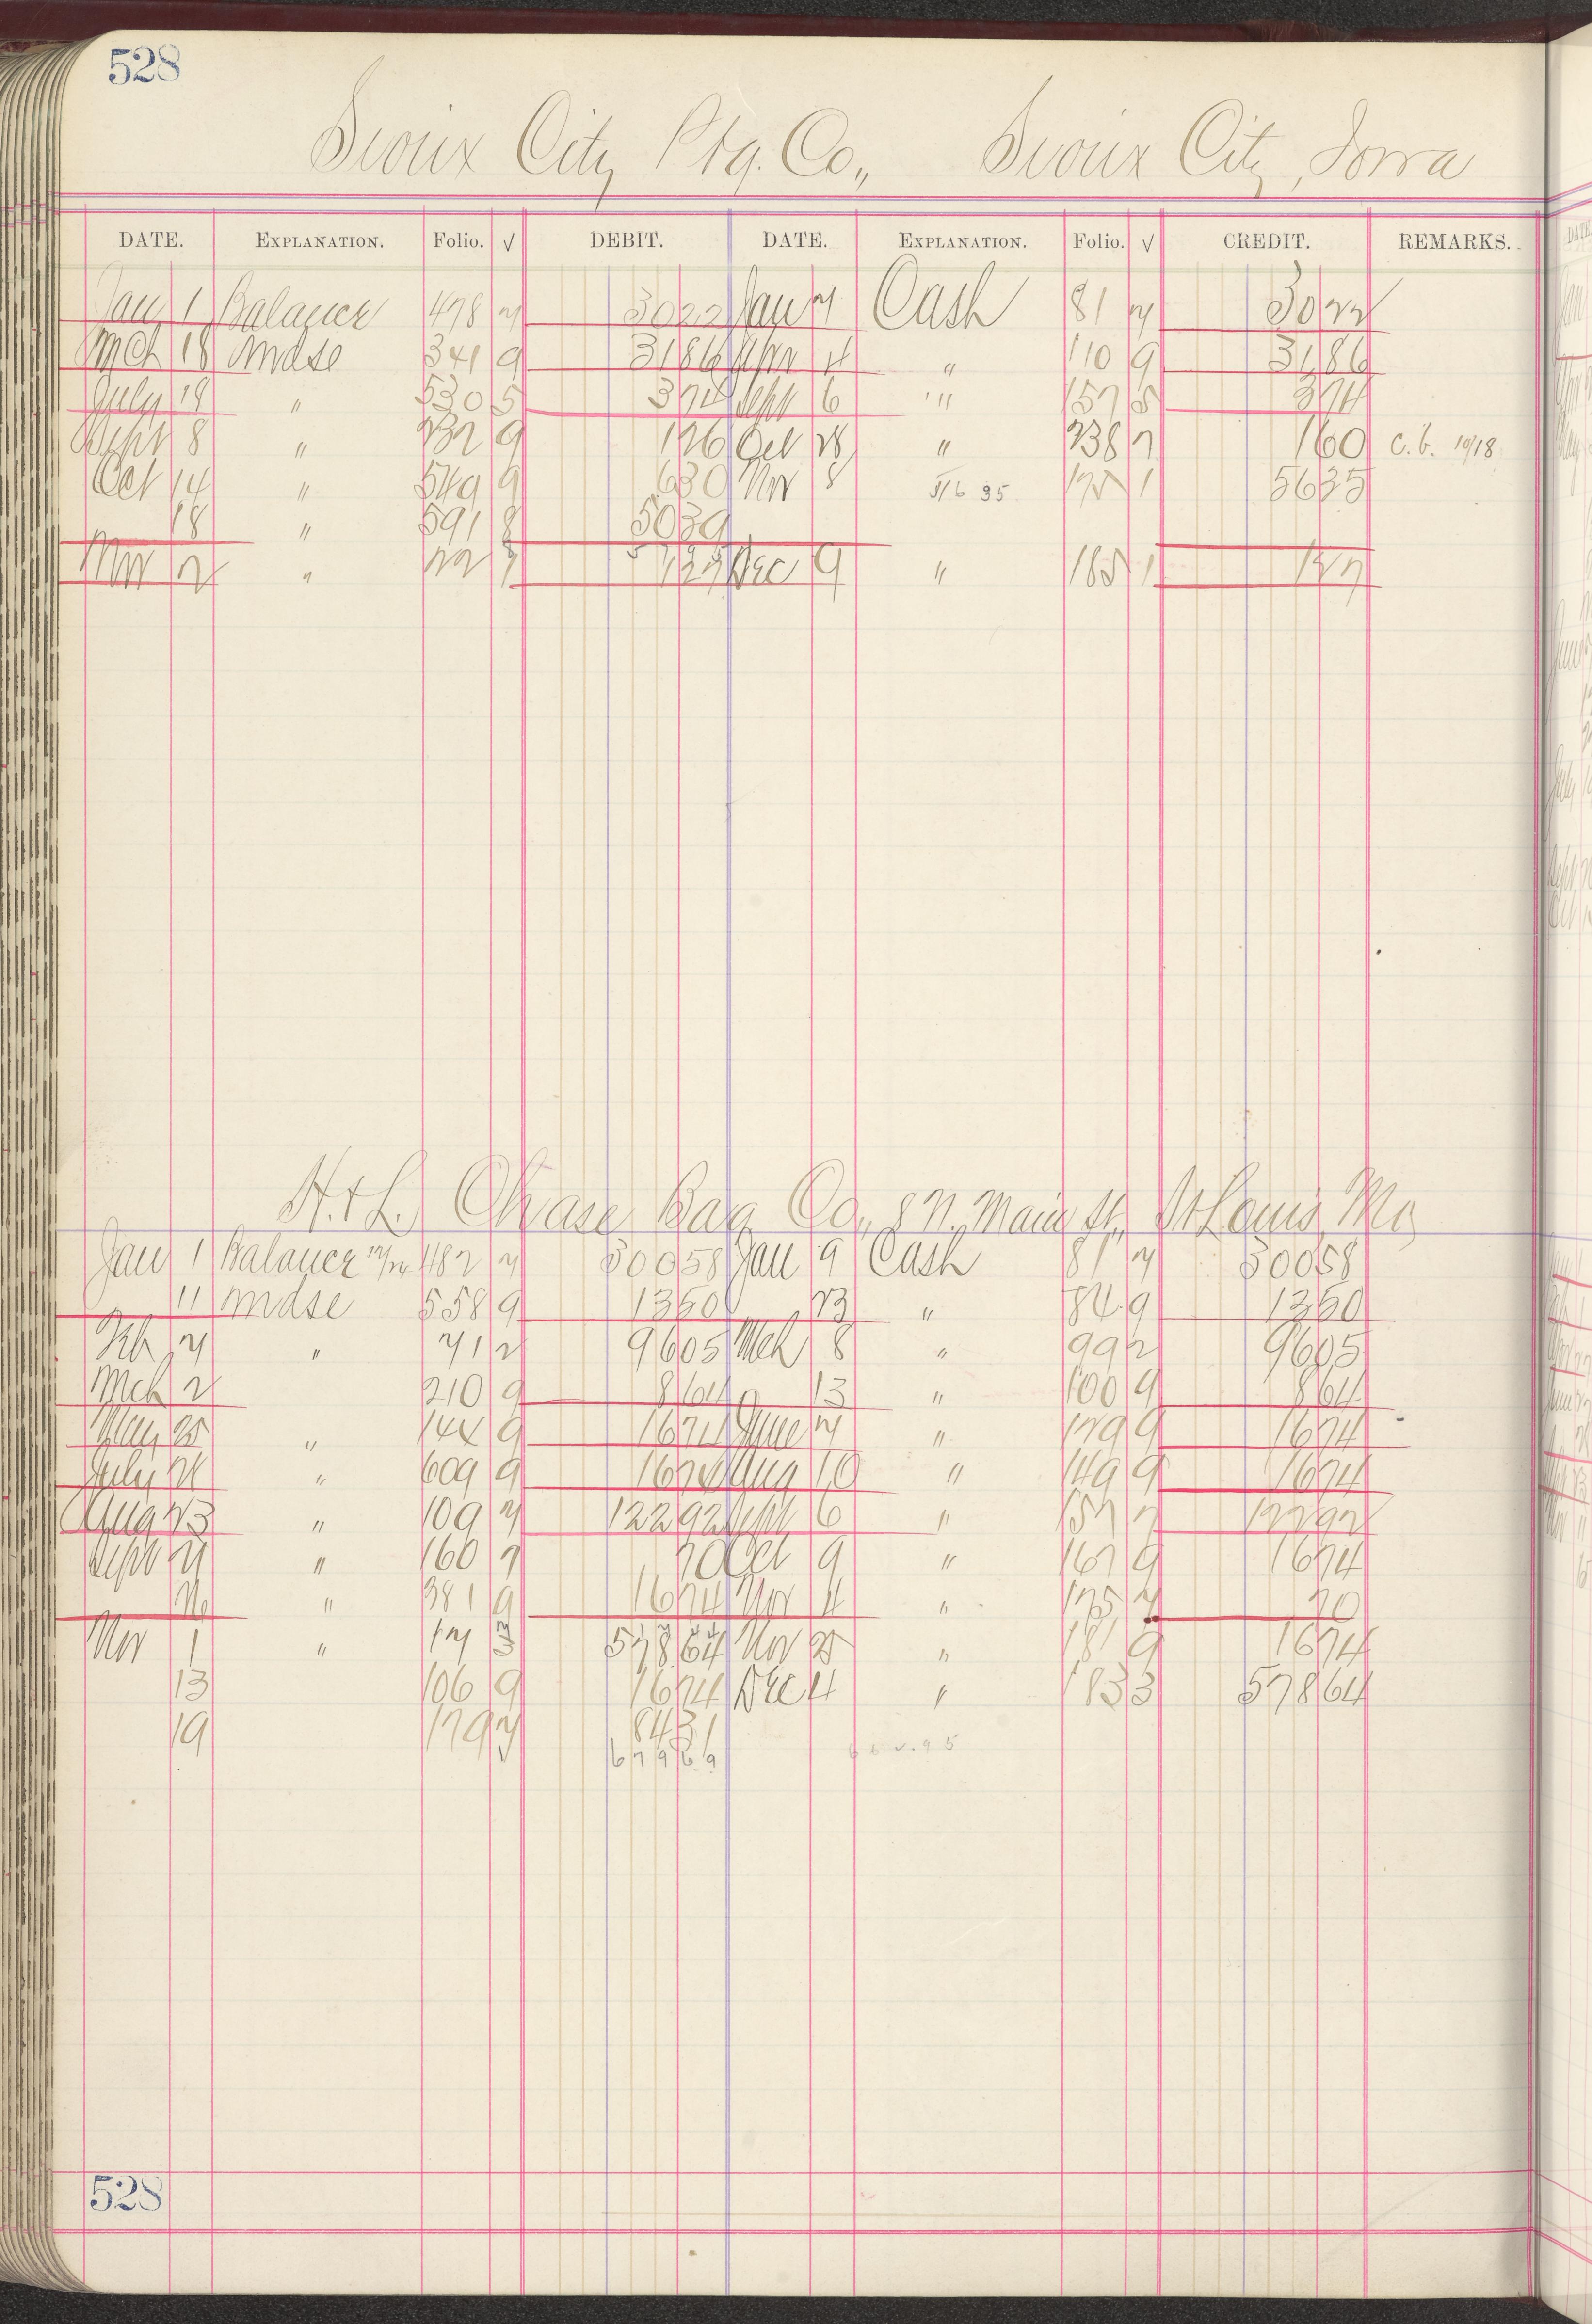 528
Sioux City Ptg. Co., Sioux City, Iowa
DATE. EXPLANATION. Folio. √ DEBIT. DATE. EXPLANATION. Folio. √ CREDIT. REMARKS.
Jan 1 Balance 478 2 3022 Jan 7 Cash 81 2 3022
Mch 18 Mdse 341 9 3186 Apr 4 " 110 9 3186
July 19 " 530 5 374 Sept 6 " 157 5 374
Sept 8 " 232 9 126 Oct 28 " 238 7 160 C.b. 10/18
Oct 14 " 549 9 630 Nov 8 5/6 35 175 1 5635
18 " 591 8 5039
Nov 2 " 22 7 127 Dec 9 " 185 1 127
H. & L. Chase Bag Co., 8 N. Main St., St Louis, Mo
Jan 1 Balance 482 2 30058 Jan 9 Cash 81 2 30058
11 Mdse 558 9 1350 23 " 84 9 1350
Feb 7 " 71 2 9605 Mch 8 " 99 2 9605
Mch 2 210 9 864 13 " 100 9 864
May 25 " 144 9 1674 June 7 " 129 9 1674
July 21 " 609 9 1674 Aug 10 " 149 9 1674
Aug 23 " 109 7 12292 Sept 6 " 157 7 12292
Sept 21 " 160 7 70 Oct 9 " 167 9 1674
26 " 381 9 1674 Nov 4 " 175 7 70
Nov 1 " 17 3 57864 Nov 25 " 181 9 1674
13 106 9 1674 Dec 4 " 183 3 57864
19 179 7 8431
67969
528